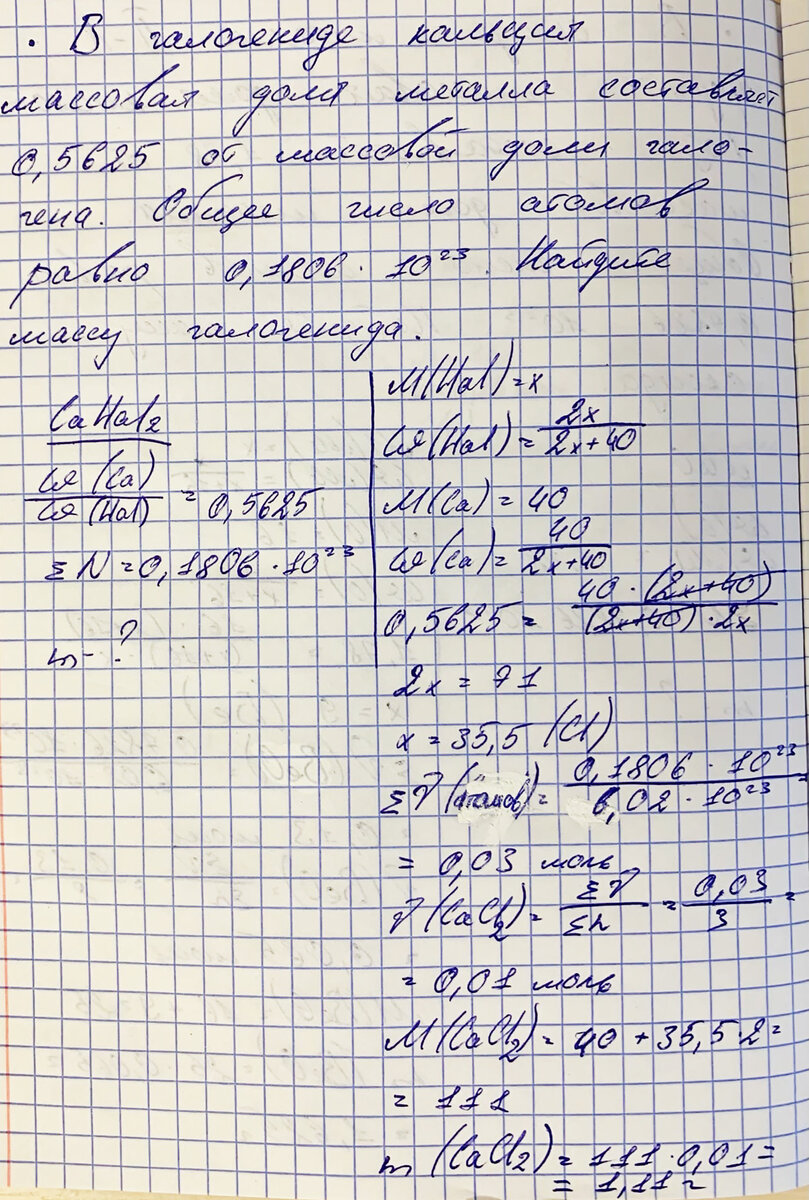 . В галогениде кальция
массовая доля металла составляет
0,5625 от массовой доли гало-
гена. Общее число атомов
равно 0,1806 · 10²³. Найдите
массу галогенида.
CaHal₂
ω(Ca)
ω(Hal) = 0,5625
ΣN = 0,1806 · 10²³
m - ?
M(Hal) = x
ω(Hal) = 2x / 2x+40
M(Ca) = 40
ω(Ca) = 40 / 2x+40
0,5625 = 40 · (2x+40) / (2x+40) · 2x
2x = 71
x = 35,5 (Cl)
Σν(атомов) = 0,1806 · 10²³ / 6,02 · 10²³ =
= 0,03 моль
ν(CaCl₂) = Σν / Σn = 0,03 / 3 =
= 0,01 моль
M(CaCl₂) = 40 + 35,5·2 =
= 111
m (CaCl₂) = 111 · 0,01 =
= 1,11 г